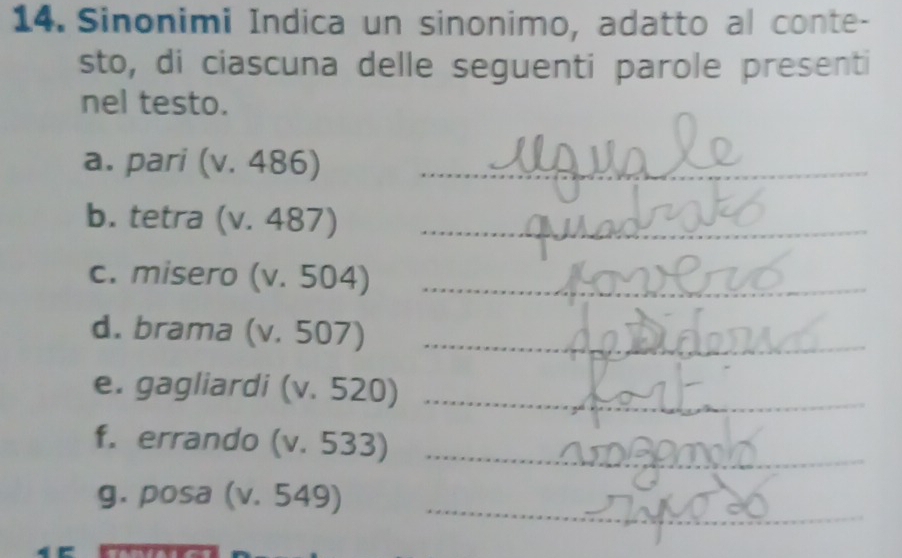 14. Sinonimi Indica un sinonimo, adatto al conte-
sto, di ciascuna delle seguenti parole presenti
nel testo.
a. pari (v. 486) uguale
b. tetra (v. 487) quadrato
c. misero (v. 504) povero
d. brama (v. 507) desiderio
e. gagliardi (v. 520) forti
f. errando (v. 533) vagando
g. posa (v. 549) riposo
15